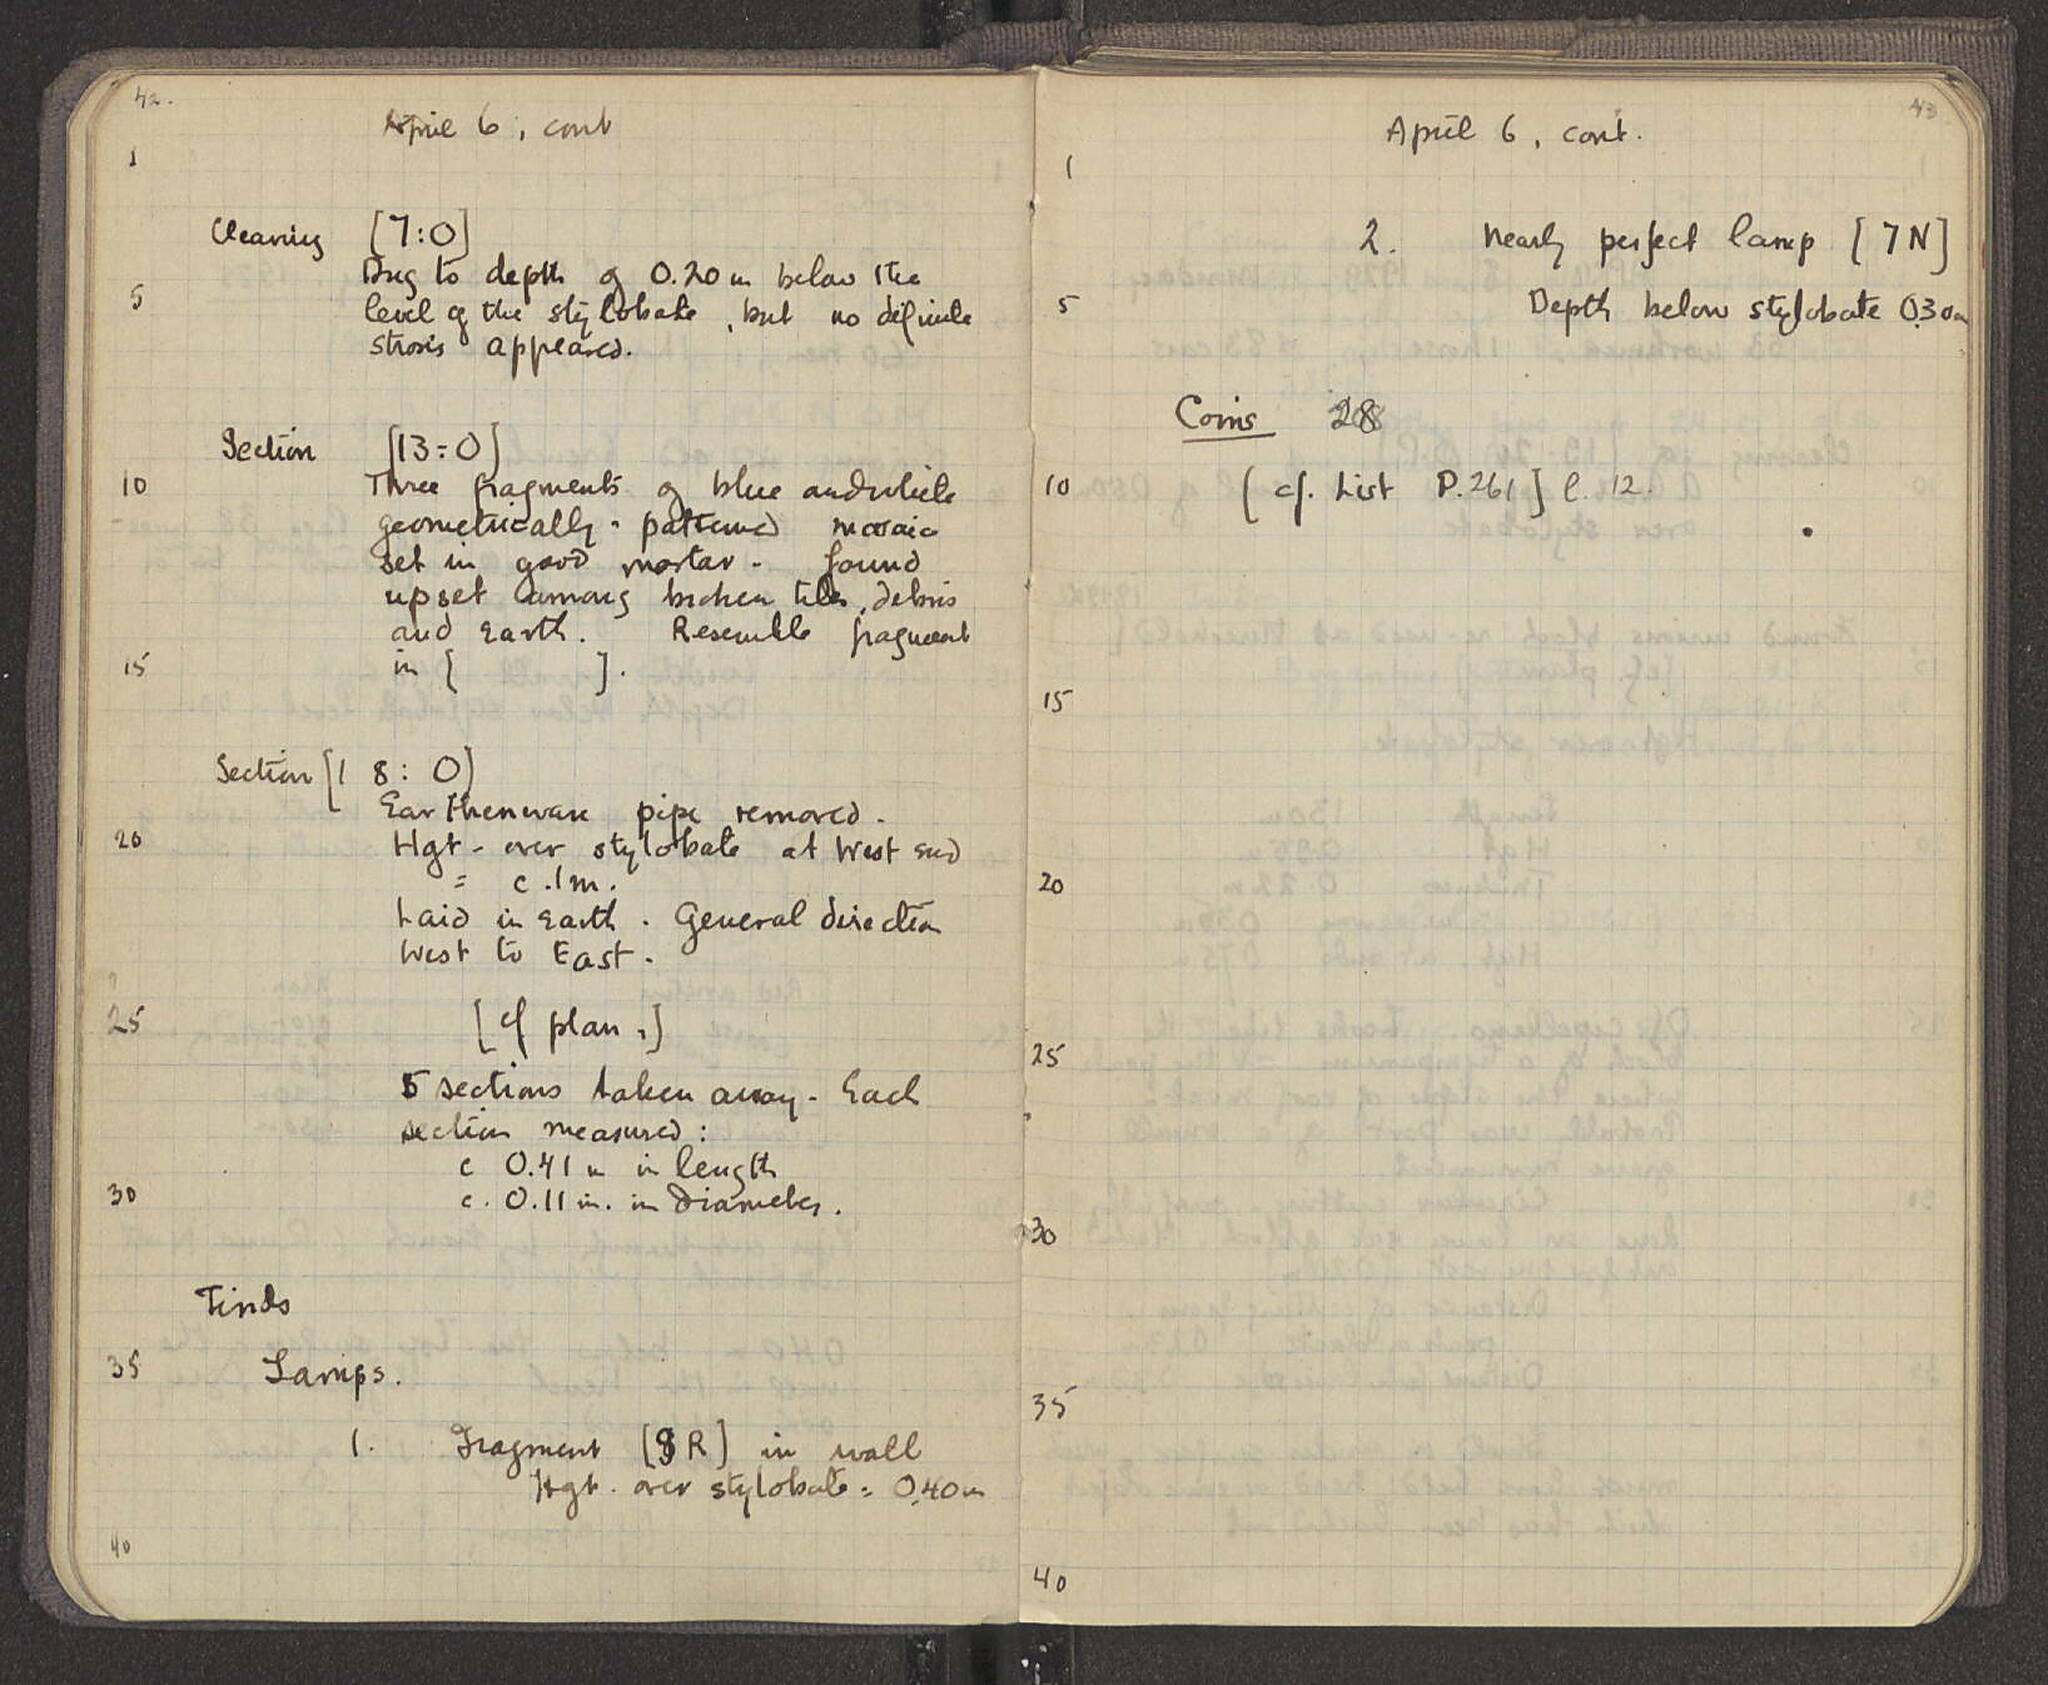 42.
April 6, cont
1
Clearing [7:O]
Dug to depth of 0.20 m below the
5 level of the stylobate, but no definite
strosis appeared.
Section [13:O]
10 Three fragments of blue and white
geometrically-patterned mosaic
set in good mortar - found
upset among broken tiles, debris
and Earth. Resemble fragment
15 in [ ].
Section [18:O]
Earthenware pipe removed.
20 Hgt - over stylobate at West End
= c. 1m.
Laid in Earth. General direction
West to East.
25 [cf plan,]
5 sections taken away. Each
section measured:
c 0.41 m in length
30 c. 0.11 m. in Diameter.
Finds
35 Lamps.
1. Fragment [ R] in wall
Hgt. over stylobate = 0.40m
40
43.
April 6, cont.
1
2. Nearly perfect lamp [7N]
5 Depth below stylobate 0.30m
Coins 28
10 [cf. List P.261] l. 12.
15
20
25
30
35
40